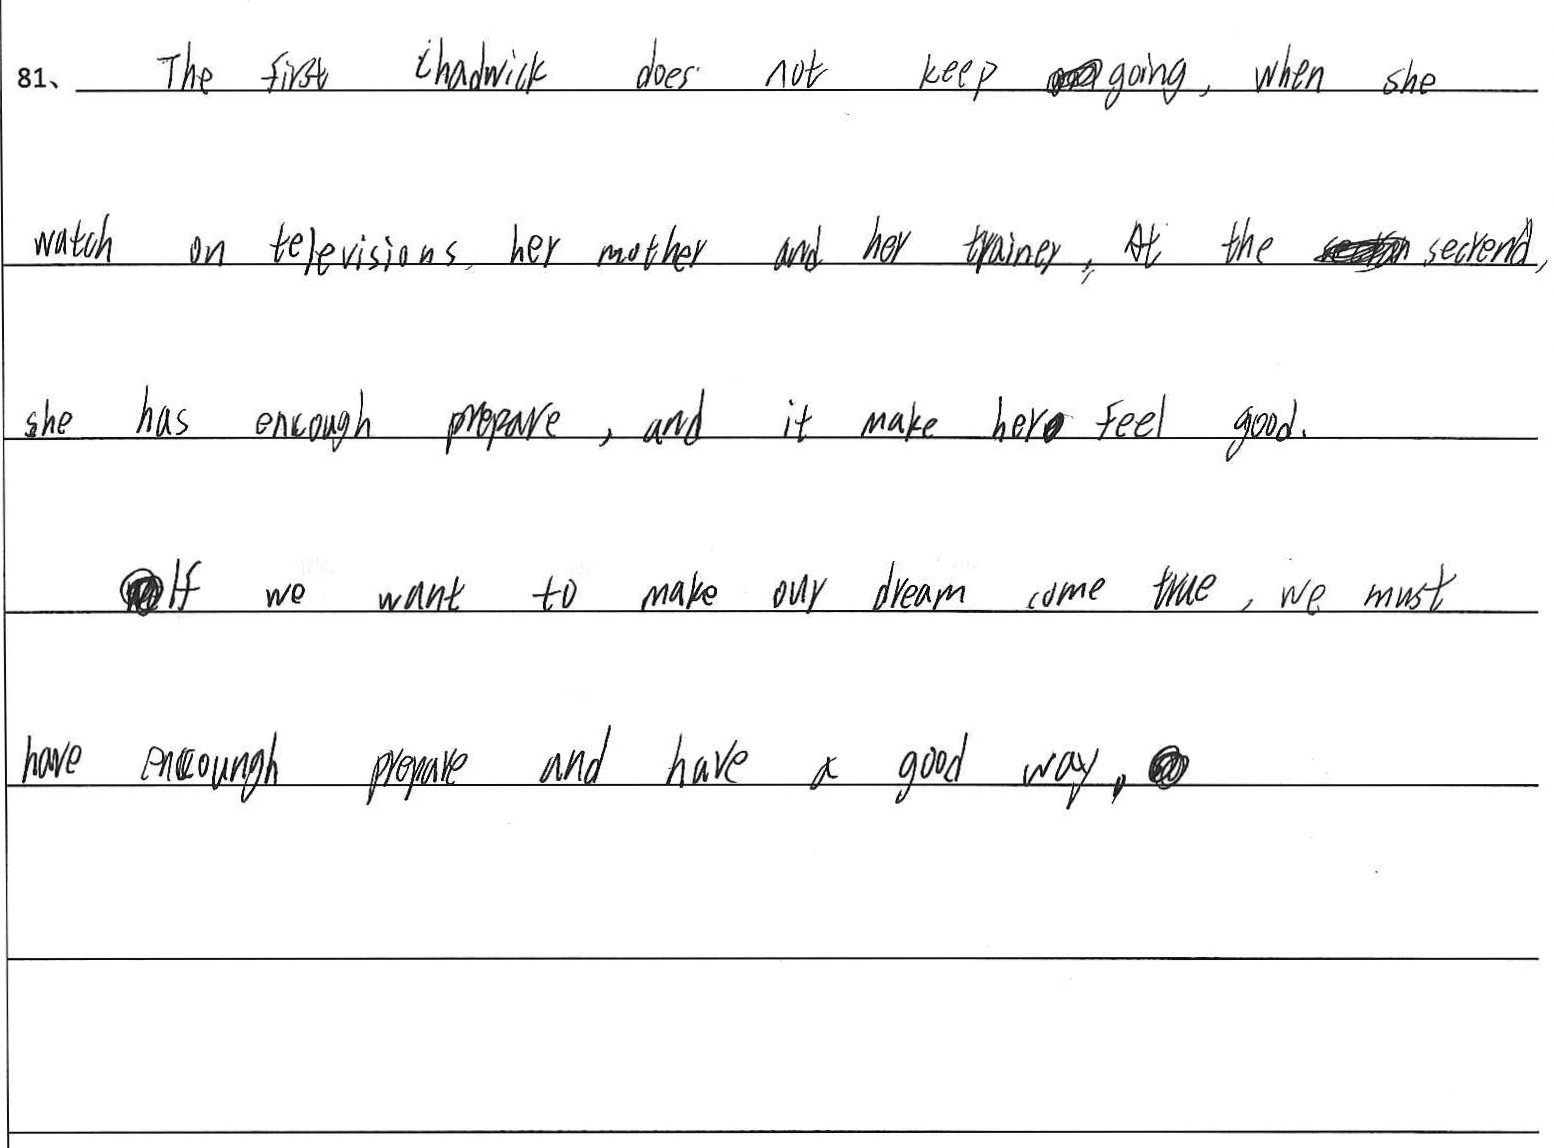 81、 The first Chadwick does not keep going, when she
watch on televisions, her mother and her trainer, At the secrend,
she has encough prepare, and it make her feel good.
If we want to make our dream come true, we must
have encoungh prepare and have a good way,